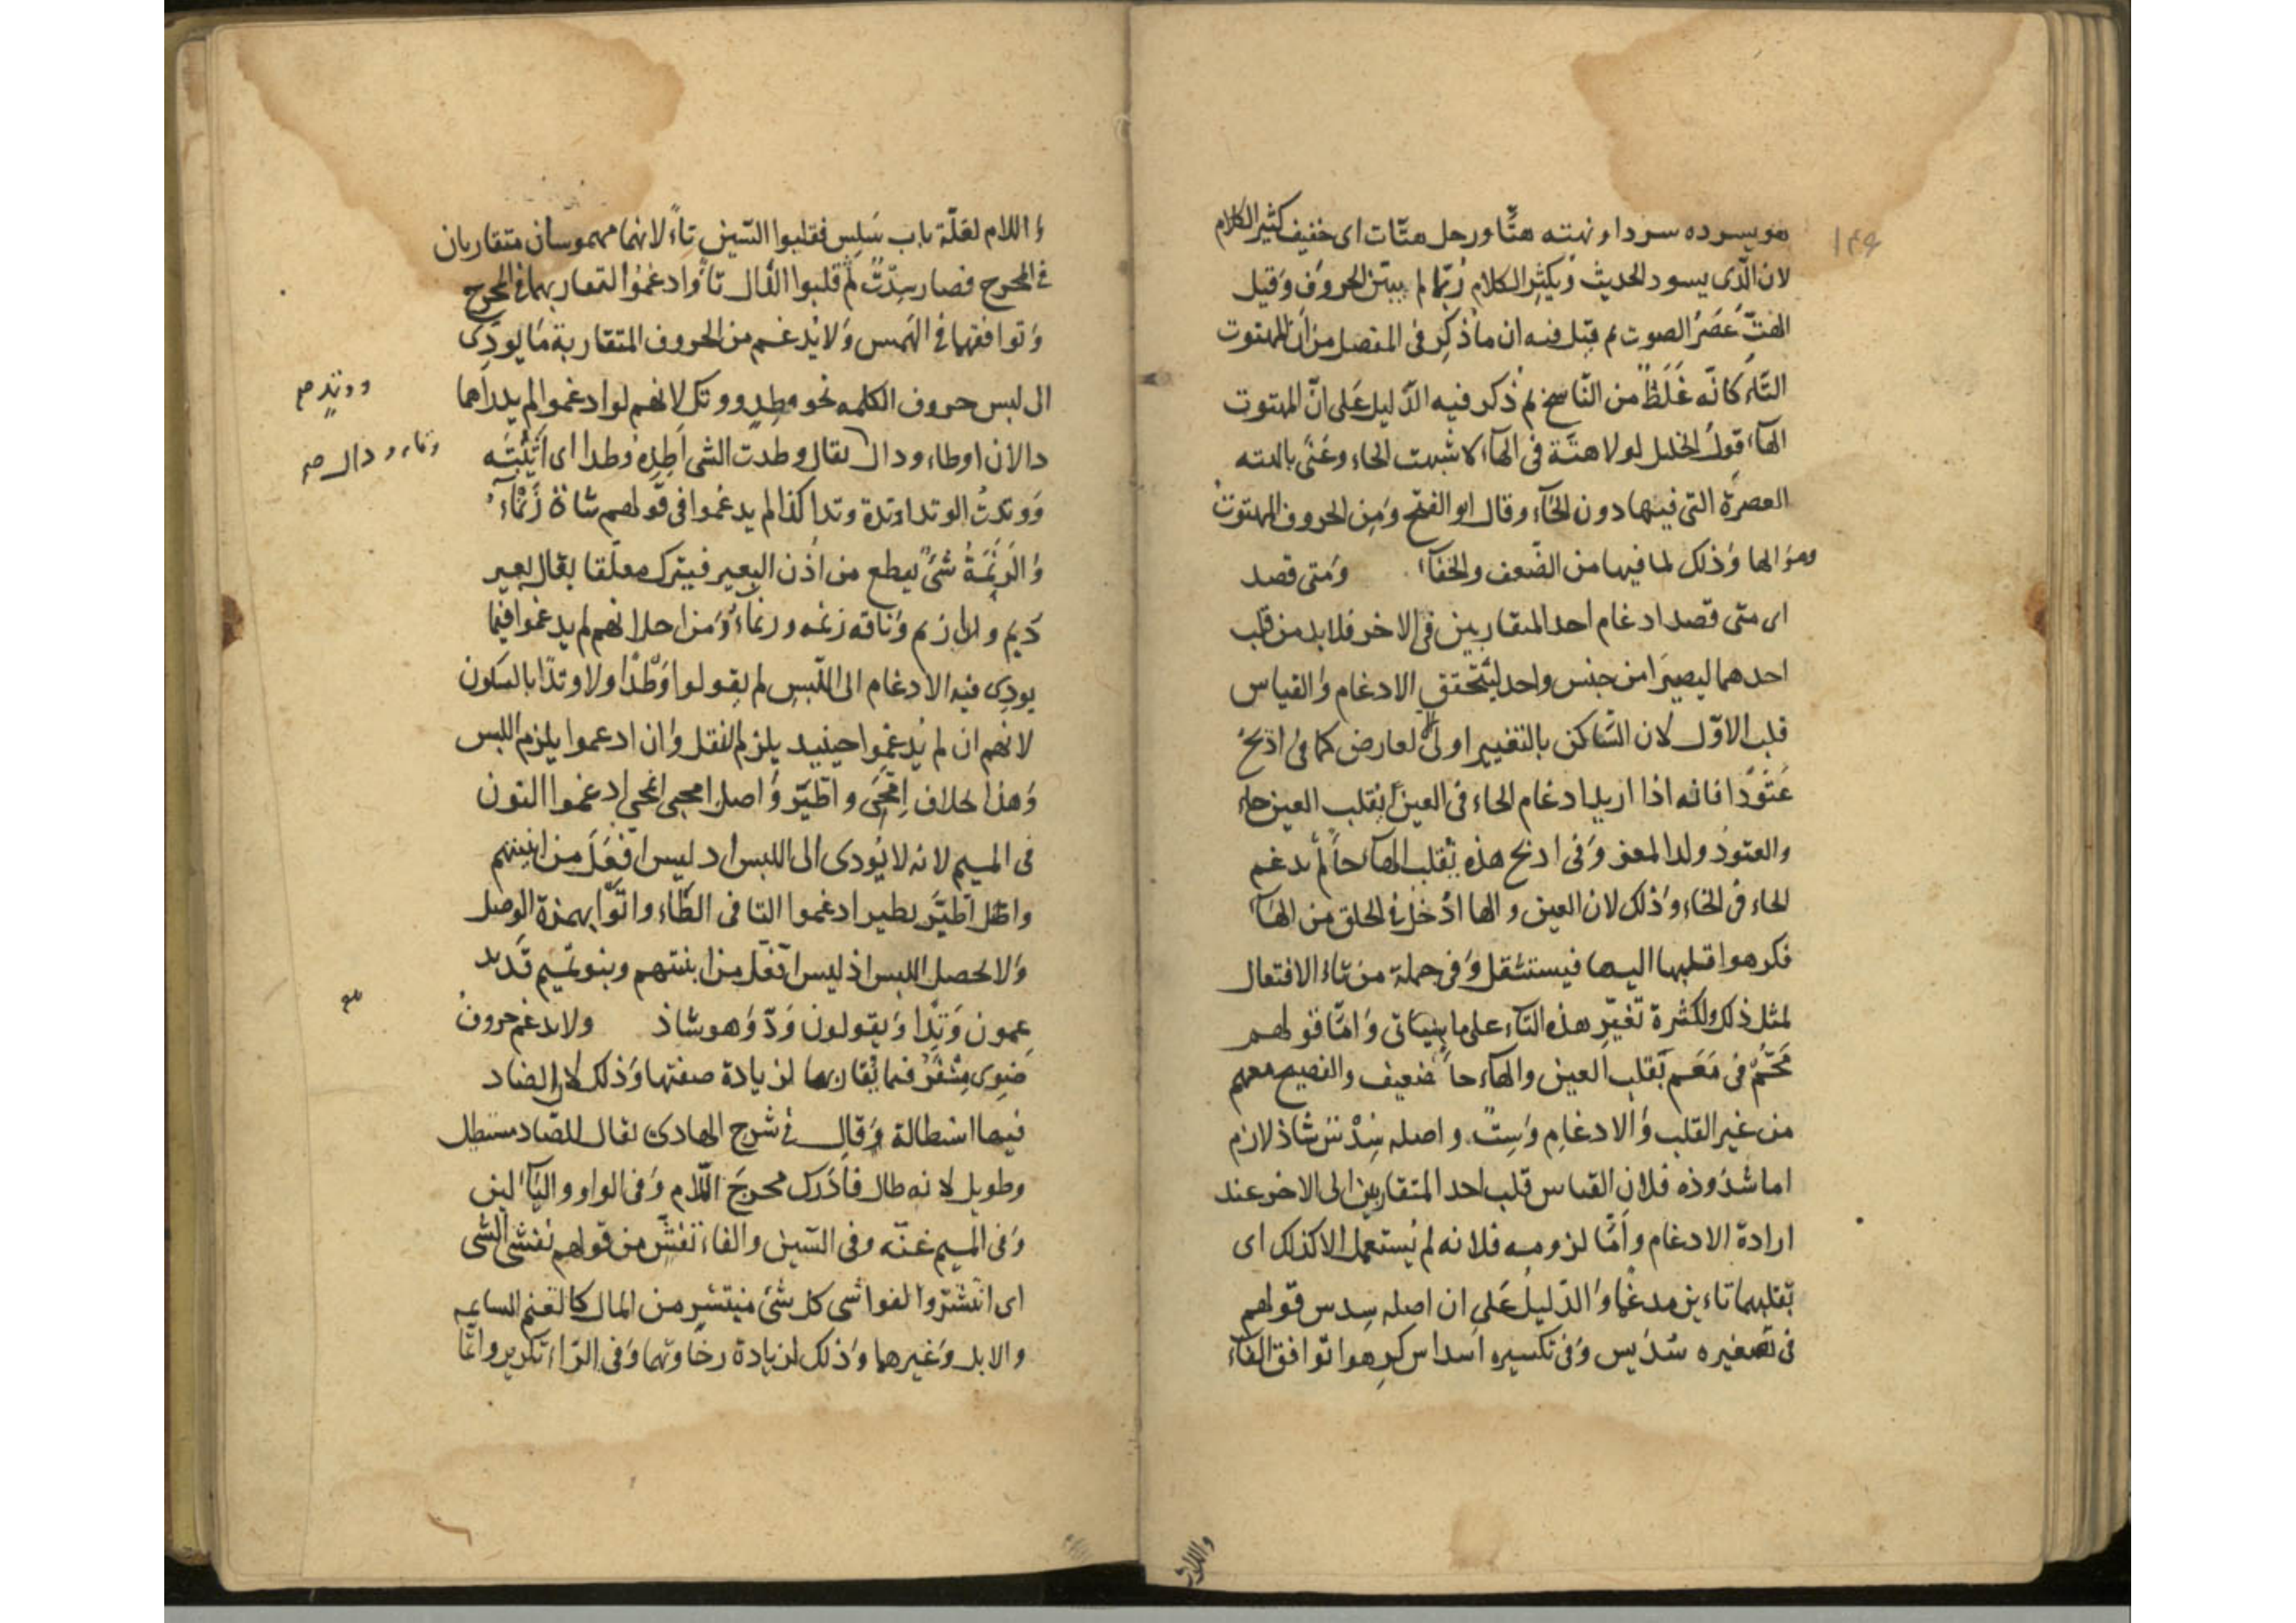 ١٤٩
هو يسرده سردا و نهته هتّا ورجل هتّات اى خفيف كثير الكلام
لان الّذى يسود الحديث ويكثر الكلام ربّما لم يبيّن الحروف وقيل
الهتّ عصر الصوت ثم قيل فيه ان ما ذكر فى المفصل من ان المهتوت
التاء كانّه غلظ من النّاسخ ثم ذكر فيه الدّليل على انّ المهتوت
الهآء قول الخليل لولا هتّة فى الهآء لاشبهت الحاء وعنى بالهته
العصرة التى فيها دون الحآء وقال ابو الفتح ومن الحروف المهتوت
وهو الها وذلك لما فيها من الضّعف والخفآء ومتى قصد
اى متى قصد ادغام احد المتقاربين فى الاخر فلا بد من قلب
احدهما ليصيرا من جنس واحد ليتحقق الادغام والقياس
قلب الاوّل لان السّاكن بالتغيير اولى الا لعارض كما فى اذبح
عتودا فانه اذا اريد ادغام الحاء فى العين يقلب العين حاء
والعتود ولد المعز وفى اذبح هذه يقلب الهآء حآء ثم يدغم
الحاء فى الحاء وذلك لان العين و الها ادخل فى الحلق من الهآء
فكرهوا قلبها اليها فيستثقل وفى جملة من تاء الافتعال
لمثل ذلك ولكثرة تغيّر هذه التآء على ما سياتى وامّا قولهم
محّم فى معهم بقلب العين والهآء حآء ضعيف والفصيح معهم
من غير القلب والادغام وستّ واصله سدس شاذ لازم
اما شذوذه فلان القياس قلب احد المتقاربين الى الاخر عند
ارادة الادغام وامّا لزومه فلانه لم يستعمل الا كذلك اى
بقلبهما تاءين مدغما والدّليل على ان اصله سدس قولهم
فى تصغيره سديس وفى تكسيره اسداس كرهوا توافق الفآء
واللام
و اللام لقلّة باب سلس فقلبوا السّين تآء لانهما مهموسان متقاربان
فى المخرج فصار سدت ثم قلبوا الدال تآء وادغموا لتقاربهما فى المخرج
وتوافقهما فى الهمس ولا يدغم من الحروف المتقاربة ما يودى
الى لبس حروف الكلمه نحو وطد ووتد لانهم لو ادغموا لم يدر اهما
ووتد صح
دالان او طاء ودال يقال وطدت الشى اطده وطدا اى اثبتّه
وتاء ودال صح
ووتدت الوتد اتده وتدا كذا لم يدغموا فى قولهم شاة زنمآء
والزنمة شئ يقطع من اذن البعير فيترك معلّقا يقال بعير
زنم وازنم وناقه زنمه وزنمآء ومن اجل انهم لم يدغموا فيما
يودى فيه الادغام الى اللّبس لم يقولوا وطدا ولا وتدا بالسكون
لانهم ان لم يدغموا حينئذ يلزم الثقل وان ادغموا يلزم اللبس
وهذا بخلاف امّحى واطّيّر واصل امحى انمحى ادغموا النون
فى الميم لانه لا يودى الى اللبس اذ ليس افّعل من ابنيتهم
واصل اطّيّر تطير ادغموا التا فى الطّاء واتوا بهمزة الوصل
ولا يحصل اللبس اذ ليس افّعّل من ابنيتهم وبنو تميم قد يد
غمون وتدا ويقولون ودّ وهو شاذ ولا يدغم حروف
ضوى مشفر فيما يقاربها لزيادة صفتها وذلك لان الضاد
فيها استطالة وقال فى شرح الهادى يقال للضّاد مستطيل
وطويل لانه طال فادرك مخرج اللّام وفى الواو واليآء لين
وفى الميم غنّه وفى الشين والفاء تفشّ من قولهم تفشى الشى
اى انتشر والفواشى كل شئ منتشر من المال كالغنم السايمه
والابل وغيرها وذلك لزيادة رخاوتهما وفى الرّاء تكرير وامّا